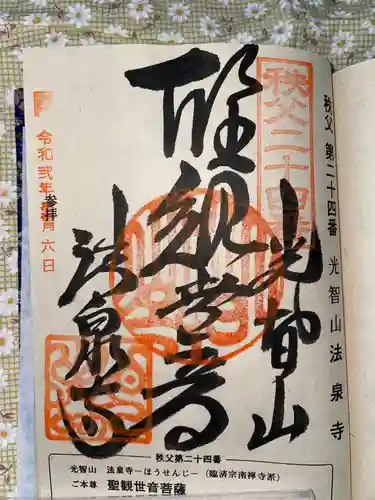 秩父 第二十四番 光智山 法泉寺
秩父二十四番
光智山
聖観世音
法泉寺
参拝
令和弐年 月六日
秩父第二十四番
光智山 法泉寺―ほうせんじ―(臨済宗南禅寺派)
ご本尊 聖観世音菩薩